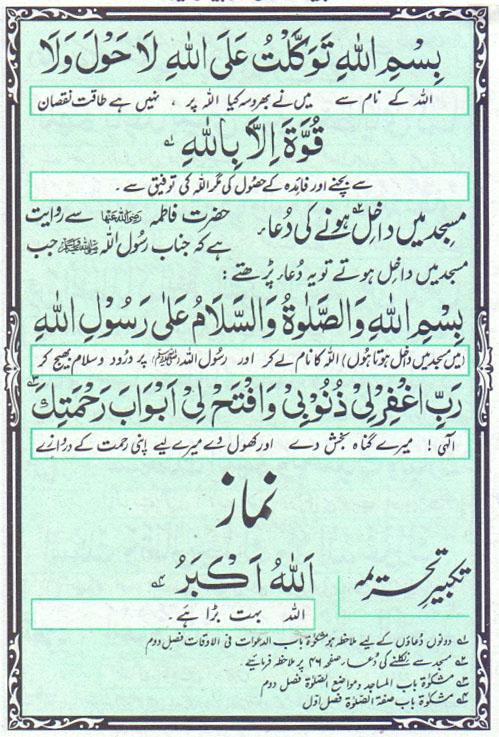 بِسْمِ اللهِ تَوَكَّلْتُ عَلَى اللهِ لَا حَوْلَ وَلَا
اللہ کے نام سے میں نے بھروسہ کیا اللہ پر ، نہیں ہے طاقت نقصان
قُوَّةَ اِلَّا بِاللهِ ؎۱
سے بچنے اور فائدہ کے حصول کی مگر اللہ کی توفیق سے ۔
مسجد میں داخل ؎۲ ہونے کی دُعاء
حضرت فاطمہ رضی اللہ عنہا سے روایت
ہے کہ جناب رسول اللہ صلی اللہ علیہ وسلم جب
مسجد میں داخل ہوتے تو یہ دُعاء پڑھتے :
بِسْمِ اللهِ وَالصَّلٰوةُ وَالسَّلَامُ عَلٰى رَسُوْلِ اللهِ
(میں مسجد میں داخل ہوتا ہوں) اللہ کا نام لے کر اور رسول اللہ (صلی اللہ علیہ وسلم) پر درُود و سلام بھیج کر
رَبِّ اغْفِرْ لِيْ ذُنُوْبِيْ وَافْتَحْ لِيْ اَبْوَابَ رَحْمَتِكَ ؎۳
الٰہی ! میرے گناہ بخش دے اور کھول دے میرے لیے اپنی رحمت کے دروازے
نماز
تکبیرِ تحریمہ
اَللهُ اَكْبَرُ ؎۴
اللہ بہت بڑا ہے ۔
؎۱ دونوں دُعاؤں کے لیے ملاحظہ ہو مشکوٰۃ باب الدعوات فی الاوقات فصل دوم
؎۲ مسجد سے نکلنے کی دُعاء صفحہ ۴۶ پر ملاحظہ فرمائیے ۔
؎۳ مشکوٰۃ باب المساجد و مواضع الصلوٰۃ فصل دوم
؎۴ مشکوٰۃ باب صفۃ الصلوٰۃ فصل اول